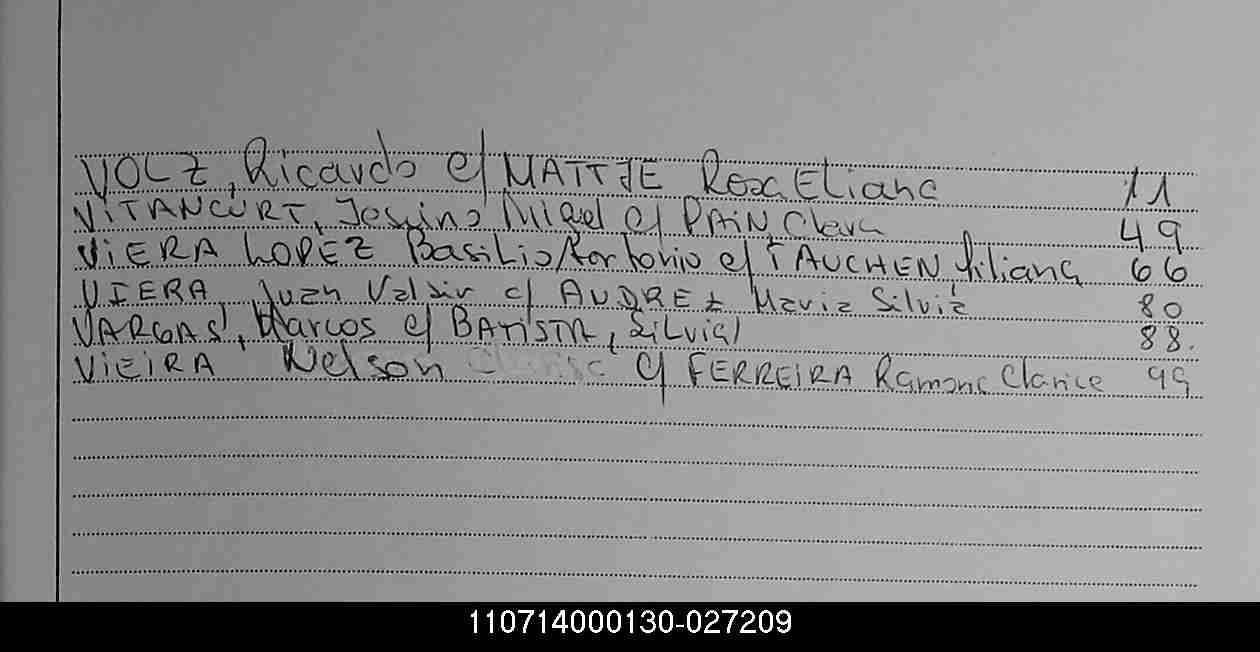 VOLZ, Ricardo c/ MATTJE Rosa Eliana 11
VITANCURT, Jovino Miguel c/ PAIN, Clara 49
VIERA LOPEZ Basilio/Antonio c/ TAUCHEN liliana 66
VIERA, Juan Valdir c/ Maria Silvia 80
VARGAS, Marcos c/ BATISTA, Silvia 88.
VIEIRA Nelson c/ FERREIRA Ramona Clarice 99
110714000130-027209